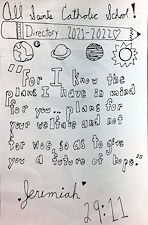 All Saints Catholic School!
Directory 2021-2022
"For I know the
plans I have in mind
for you... plans for
your welfare and not
for woe, so as to give
you a future of hope."
Jeremiah
29:11